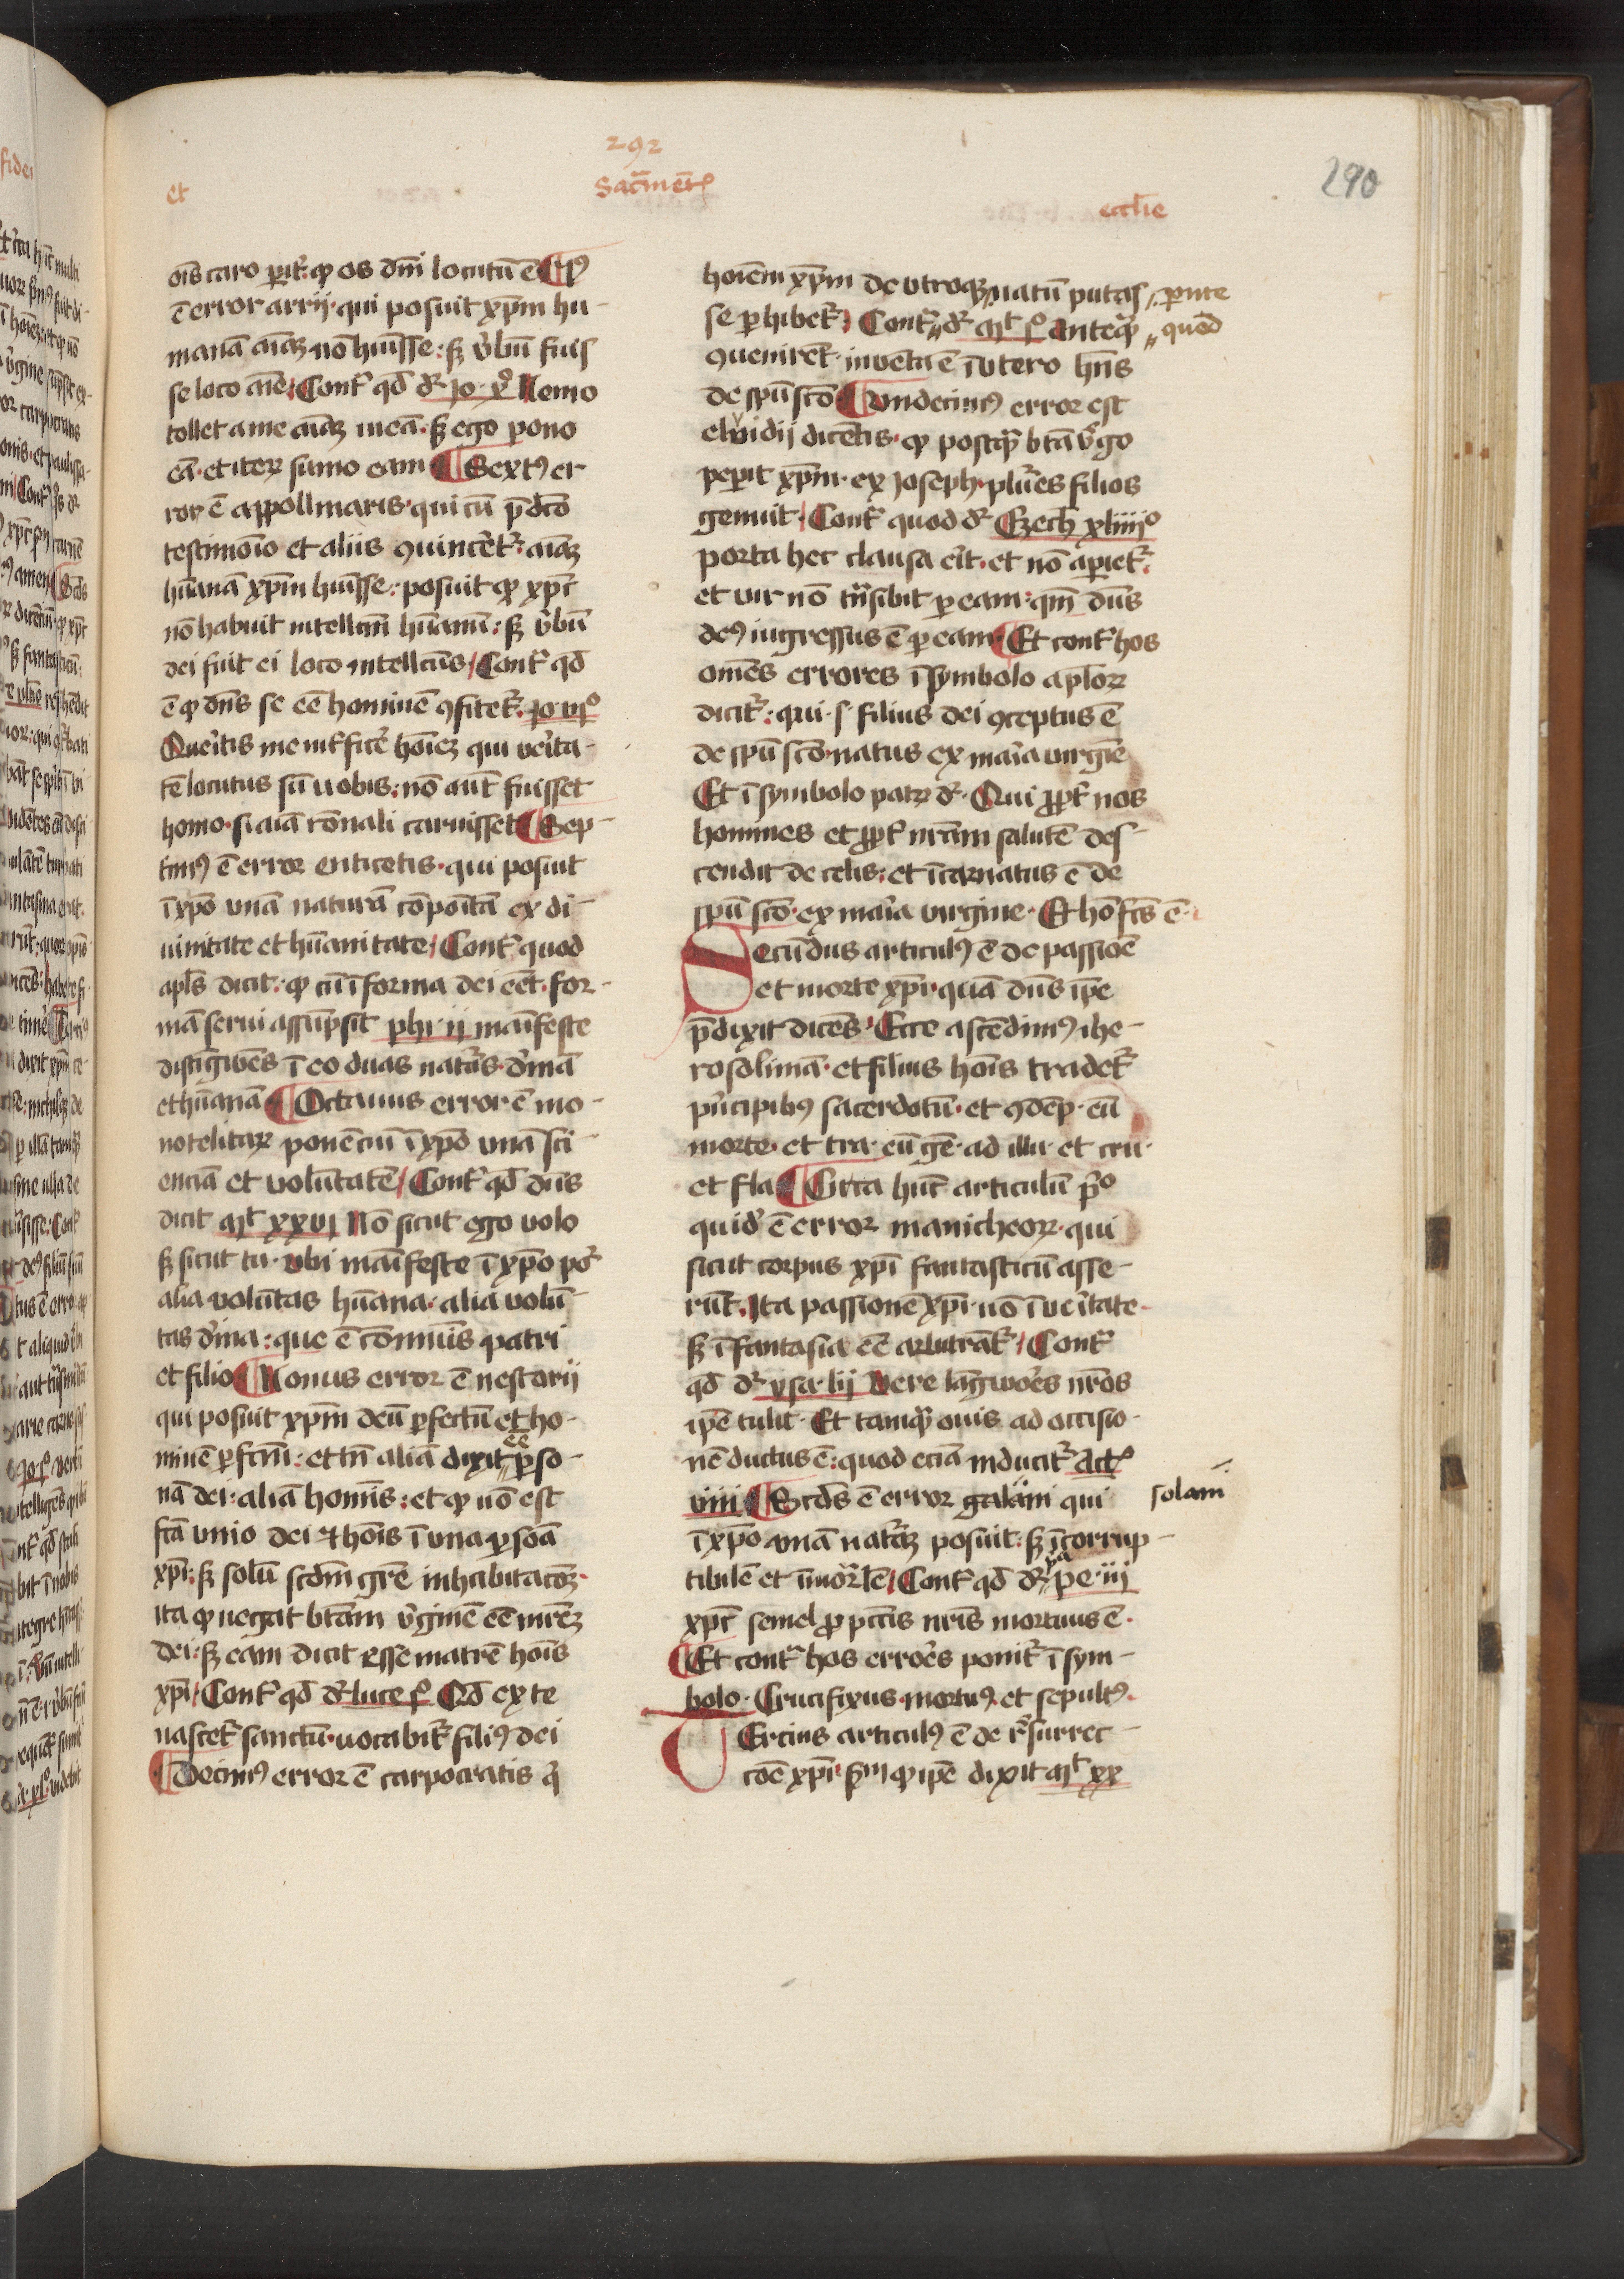 292
et
Sacͫmētꝭ
eccl̄ie
290
oīs caro ꝑiṫ: ꝙ os dn̄i locutū ē ¶ Vꝰ
ē error arrij· qui posuit xp̄m hu-
manā aīaꝫ nō hūisse: sꝫ v̓bū fuis
se loco aīe / Contᷓ qd̄ dꝛ Jo· xº Nemo
tollet a me aīaꝫ meā· sꝫ ego pono
eā· et iteꝝ sumo eam ¶ Sextꝰ er
ror ē appollinaris· qui cū p̄dc̄o
testimōio et aliis ꝯuincēt᷑· aīaꝫ
hūanā xp̄m hūisse: posuit ꝙ xp̄c
nō habuit intellcm̄ hūanū: sꝫ v̓bū
dei fuit ei loco intellcūs / Contᷓ qd̄
ē ꝙ dn̄s se eē hominē ꝯfitet᷑· Jo· viijº
Querītis me int̓ficē hoīeꝫ qui verīta-
tē locutus sū uobis: nō aut̄ fuisset
homo· si aīa rōnali caruisset ¶ Sep-
timꝰ ē error enticetis· qui posuit
ī xp̄o unā naturā cōpoītā ex di-
uinitate et hūanitate / Contᷓ quod
apl̄s dicit: ꝙ cū ī forma dei eēt· for-
mā serui assūpsit phi· ij manīfeste
distīgwēs ī eo duas natuᷓs· dīnā
et hūanā ¶ Octauus error ē mo-
notelitaꝝ ponēciū ī xp̄o unā sci-
enciā et volūtatē / Contᷓ qd̄ dn̄s
dicit Mt xxvj Nō sicut ego volo
sꝫ sicut tu· vbi manīfeste ī xp̄o poᷓ
alia volūtas hūana· alia volū-
tas dīna: que ē cōmūis patri
et filio ¶ Nonus error ē nestarij
qui posuit xp̄m deū ꝑfectū et ho-
minē ꝑfcm̄: et tn̄ aliā dixit eē ꝑso-
nā dei: aliā homīs: et ꝙ nō est
fcā vnio dei ⁊ hoīs ī una ꝑsoā
xp̄i: sꝫ solū scd̄m grē inhabitacōeꝫ·
ita ꝙ negat btām v̓ginē eē mr̄eꝫ
dei: sꝫ eam dicit esse matrē hoīs
xp̄i / Contᷓ qd̄ dꝛ luce pº Qd̄ ex te
nascet᷑ sanctū· uocabit᷑ filiꝰ dei
¶ Decimꝰ error ē carpocratis q̓
hoīem xp̄m de vtroqꝫ natū putas
ꝑente
se ꝑhibet᷑ / Contᷓ dꝛ Mt pº Anteqᷓ
quod
ꝯuenirēt· inventa ē ī vtero hn̄s
de spū scō ¶ Vndecimꝰ error est
elvidij dicētis· ꝙ postqᷓ btā v̓go
peꝑit xp̄m· ex Joseph· plūes filios
genuit / Contᷓ quod dꝛ Ezech xliiijº
porta hec clausa eīt· et nō aperiet᷑·
et vir nō tn̄sibit ꝑ eam: qm̄ dn̄s
deꝰ ingressus ē ꝑ eam ¶ Et contᷓ hos
omēs errores ī symbolo aplōꝝ
dicit᷑: qui· s· filius dei ꝯceptus ē
de spū scō· natus ex maīa virgīe
Et ī symbolo patꝝ dꝛ· Qui ꝓpt̓ nos
homines et ꝓpt̓ nr̄am salutē des-
cendit de celis: et īcarnatus ē de
spū scō· ex maīa virgine· Et hō fcūs ē·
Secūdus articulꝰ ē de passiōe
et morte xp̄i· quā dn̄s ip̄e
p̄dixit dicēs· Ecce ascēdimꝰ ihe-
rosolimā· et filius hoīs tradet᷑
pͥncipibꝰ sacerdotū· et ꝯdēp· eū
morte· et tra· eū gē· ad illu· et cru·
et fla ¶ Circa hūc articulū pͥo
quid̄ ē error manicheoꝝ· qui
sicut corpus xp̄i fantasticū asse-
rūt· Ita passionē xp̄i· nō ī verītate·
sꝫ ī fantasia eē arbitrāt᷑ / Contᷓ
qd̄ dꝛ ysa· liij Vere lāgwoēs nr̄os
ip̄e tulit· Et tamqᷓ ouis ad occisio-
nē ductus ē: quod eciā inducit᷑ Actꝭ
viij ¶ Scd̄s ē error galani qui
solam
ī xp̄o unā natᷓꝫ posuit: sꝫ īcorrup-
tibilē et īmor̓lē / Contᷓ qd̄ dꝛ pᷓ pe· iij
xp̄c semel ꝓ pctīs nr̄is mortuus ē·
¶ Et contᷓ hos erroēs ponit᷑ ī sym-
bolo· Crucifixus· mortuꝰ et sepultꝰ·
Tercius articulꝰ ē de r̓surrec-
cōe xp̄i· sꝫm ꝙ ip̄e dixit Mt xx